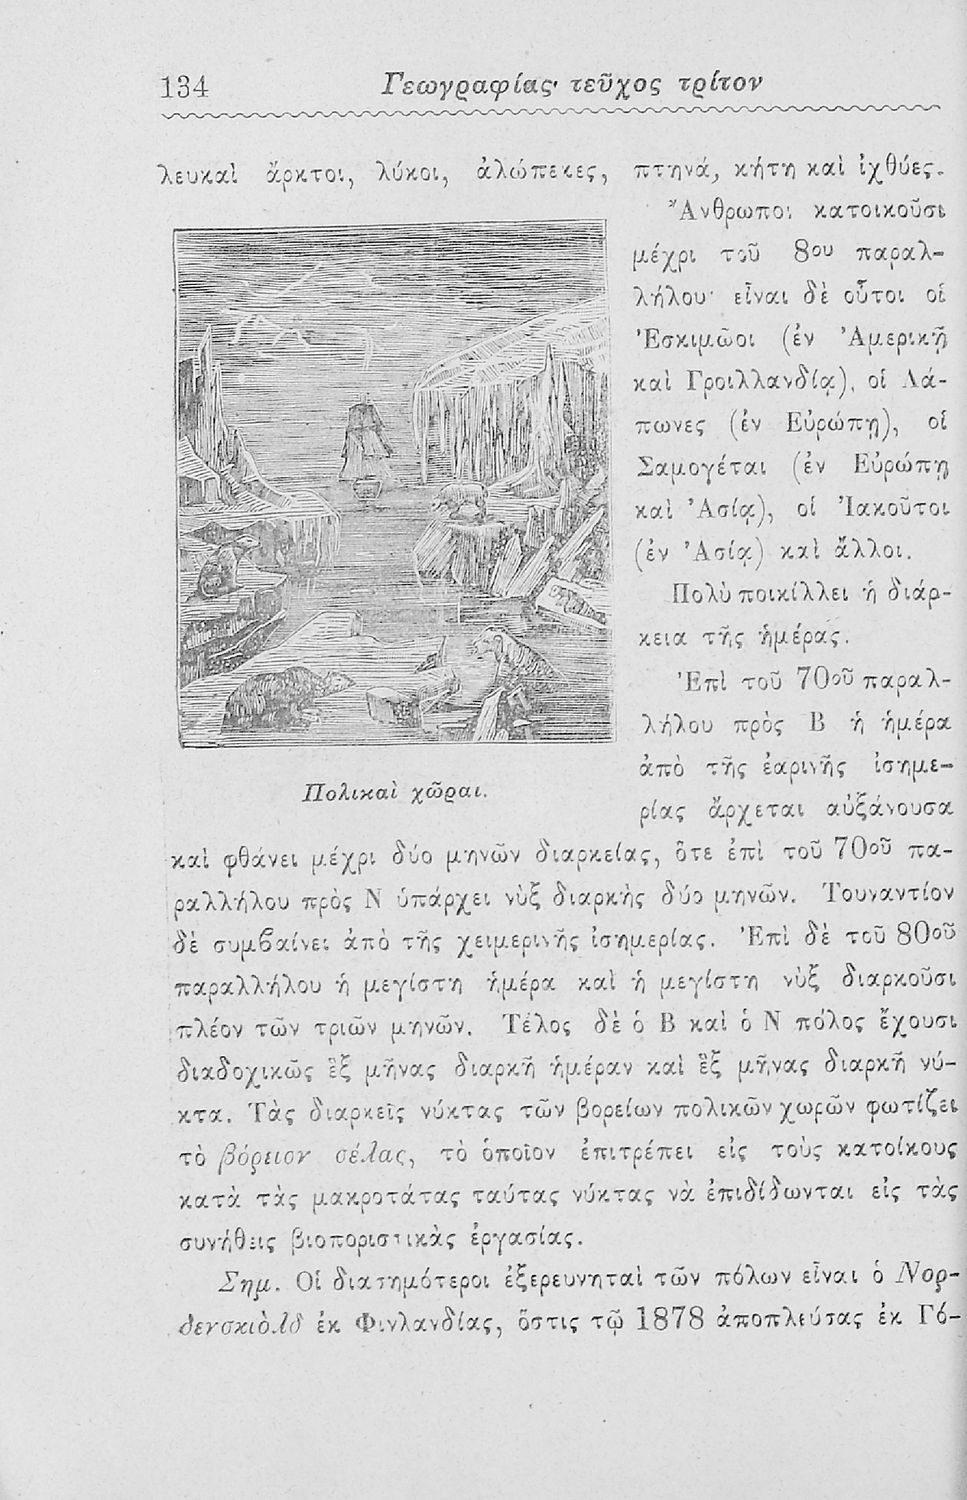 134
Γεωγραφίας· τεῦχος τρίτον
λευκαὶ ἄρκτοι, λύκοι, ἀλώπεκες, πτηνά, κήτη καὶ ἰχθύες.
Ἄνθρωποι κατοικοῦσι
μέχρι τοῦ 8ου παραλ-
λήλου· εἶναι δὲ οὗτοι οἱ
Ἐσκιμῶοι (ἐν Ἀμερικῇ
καὶ Γροιλλανδίᾳ), οἱ Λά-
πωνες (ἐν Εὐρώπῃ), οἱ
Σαμογέται (ἐν Εὐρώπῃ
καὶ Ἀσίᾳ), οἱ Ἰακοῦτοι
(ἐν Ἀσίᾳ) καὶ ἄλλοι.
Πολὺ ποικίλλει ἡ διάρ-
κεια τῆς ἡμέρας.
Ἐπὶ τοῦ 70οῦ παραλ-
λήλου πρὸς Β ἡ ἡμέρα
ἀπὸ τῆς ἐαρινῆς ἰσημε-
ρίας ἄρχεται αὐξάνουσα
Πολικαὶ χῶραι.
καὶ φθάνει μέχρι δύο μηνῶν διαρκείας, ὅτε ἐπὶ τοῦ 70οῦ πα-
ραλλήλου πρὸς Ν ὑπάρχει νὺξ διαρκὴς δύο μηνῶν. Τουναντίον
δὲ συμβαίνει ἀπὸ τῆς χειμερινῆς ἰσημερίας. Ἐπὶ δὲ τοῦ 80οῦ
παραλλήλου ἡ μεγίστη ἡμέρα καὶ ἡ μεγίστη νὺξ διαρκοῦσι
πλέον τῶν τριῶν μηνῶν. Τέλος δὲ ὁ Β καὶ ὁ Ν πόλος ἔχουσι
διαδοχικῶς ἓξ μῆνας διαρκῆ ἡμέραν καὶ ἓξ μῆνας διαρκῆ νύ-
κτα. Τὰς διαρκεῖς νύκτας τῶν βορείων πολικῶν χωρῶν φωτίζει
τὸ βόρειον σέλας, τὸ ὁποῖον ἐπιτρέπει εἰς τοὺς κατοίκους
κατὰ τὰς μακροτάτας ταύτας νύκτας νὰ ἐπιδίδωνται εἰς τὰς
συνήθεις βιοποριστικὰς ἐργασίας.
Σημ. Οἱ διασημότεροι ἐξερευνηταὶ τῶν πόλων εἶναι ὁ Νορ-
δενσκιὸλδ ἐκ Φινλανδίας, ὅστις τῷ 1878 ἀποπλεύσας ἐκ Γό-